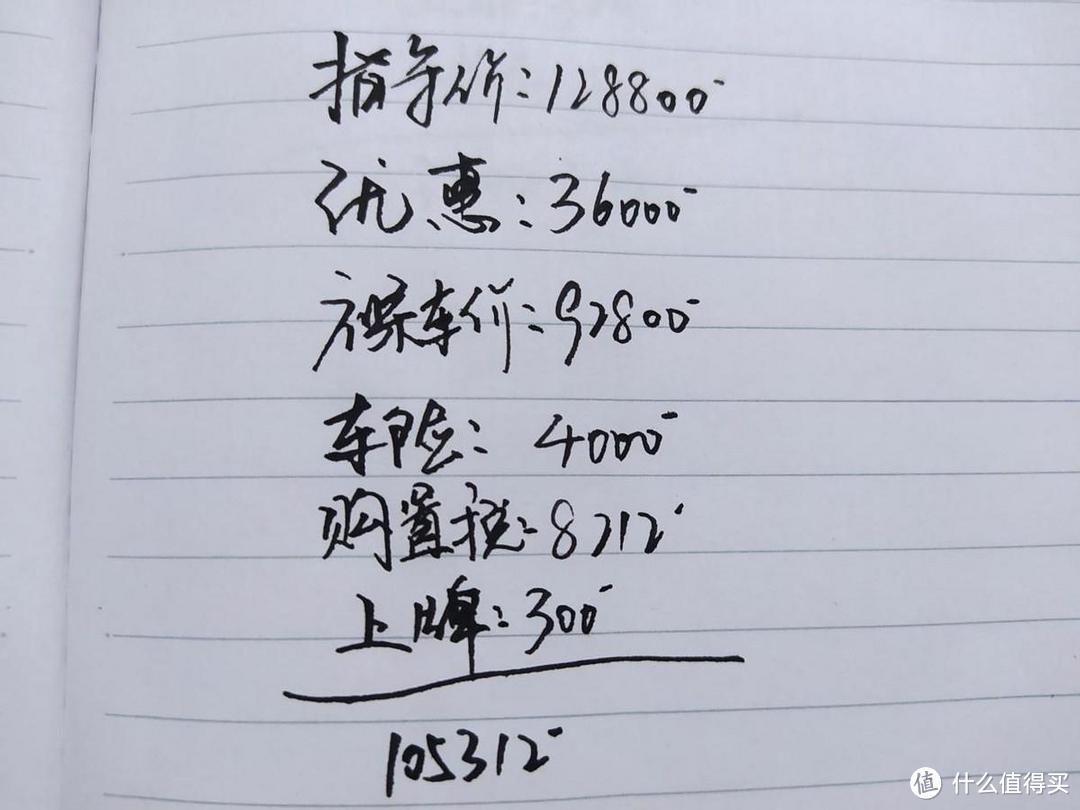 指导价：128800
优惠：36000
裸车价：92800
车险：4000
购置税：8212
上牌：300
105312
值 什么值得买